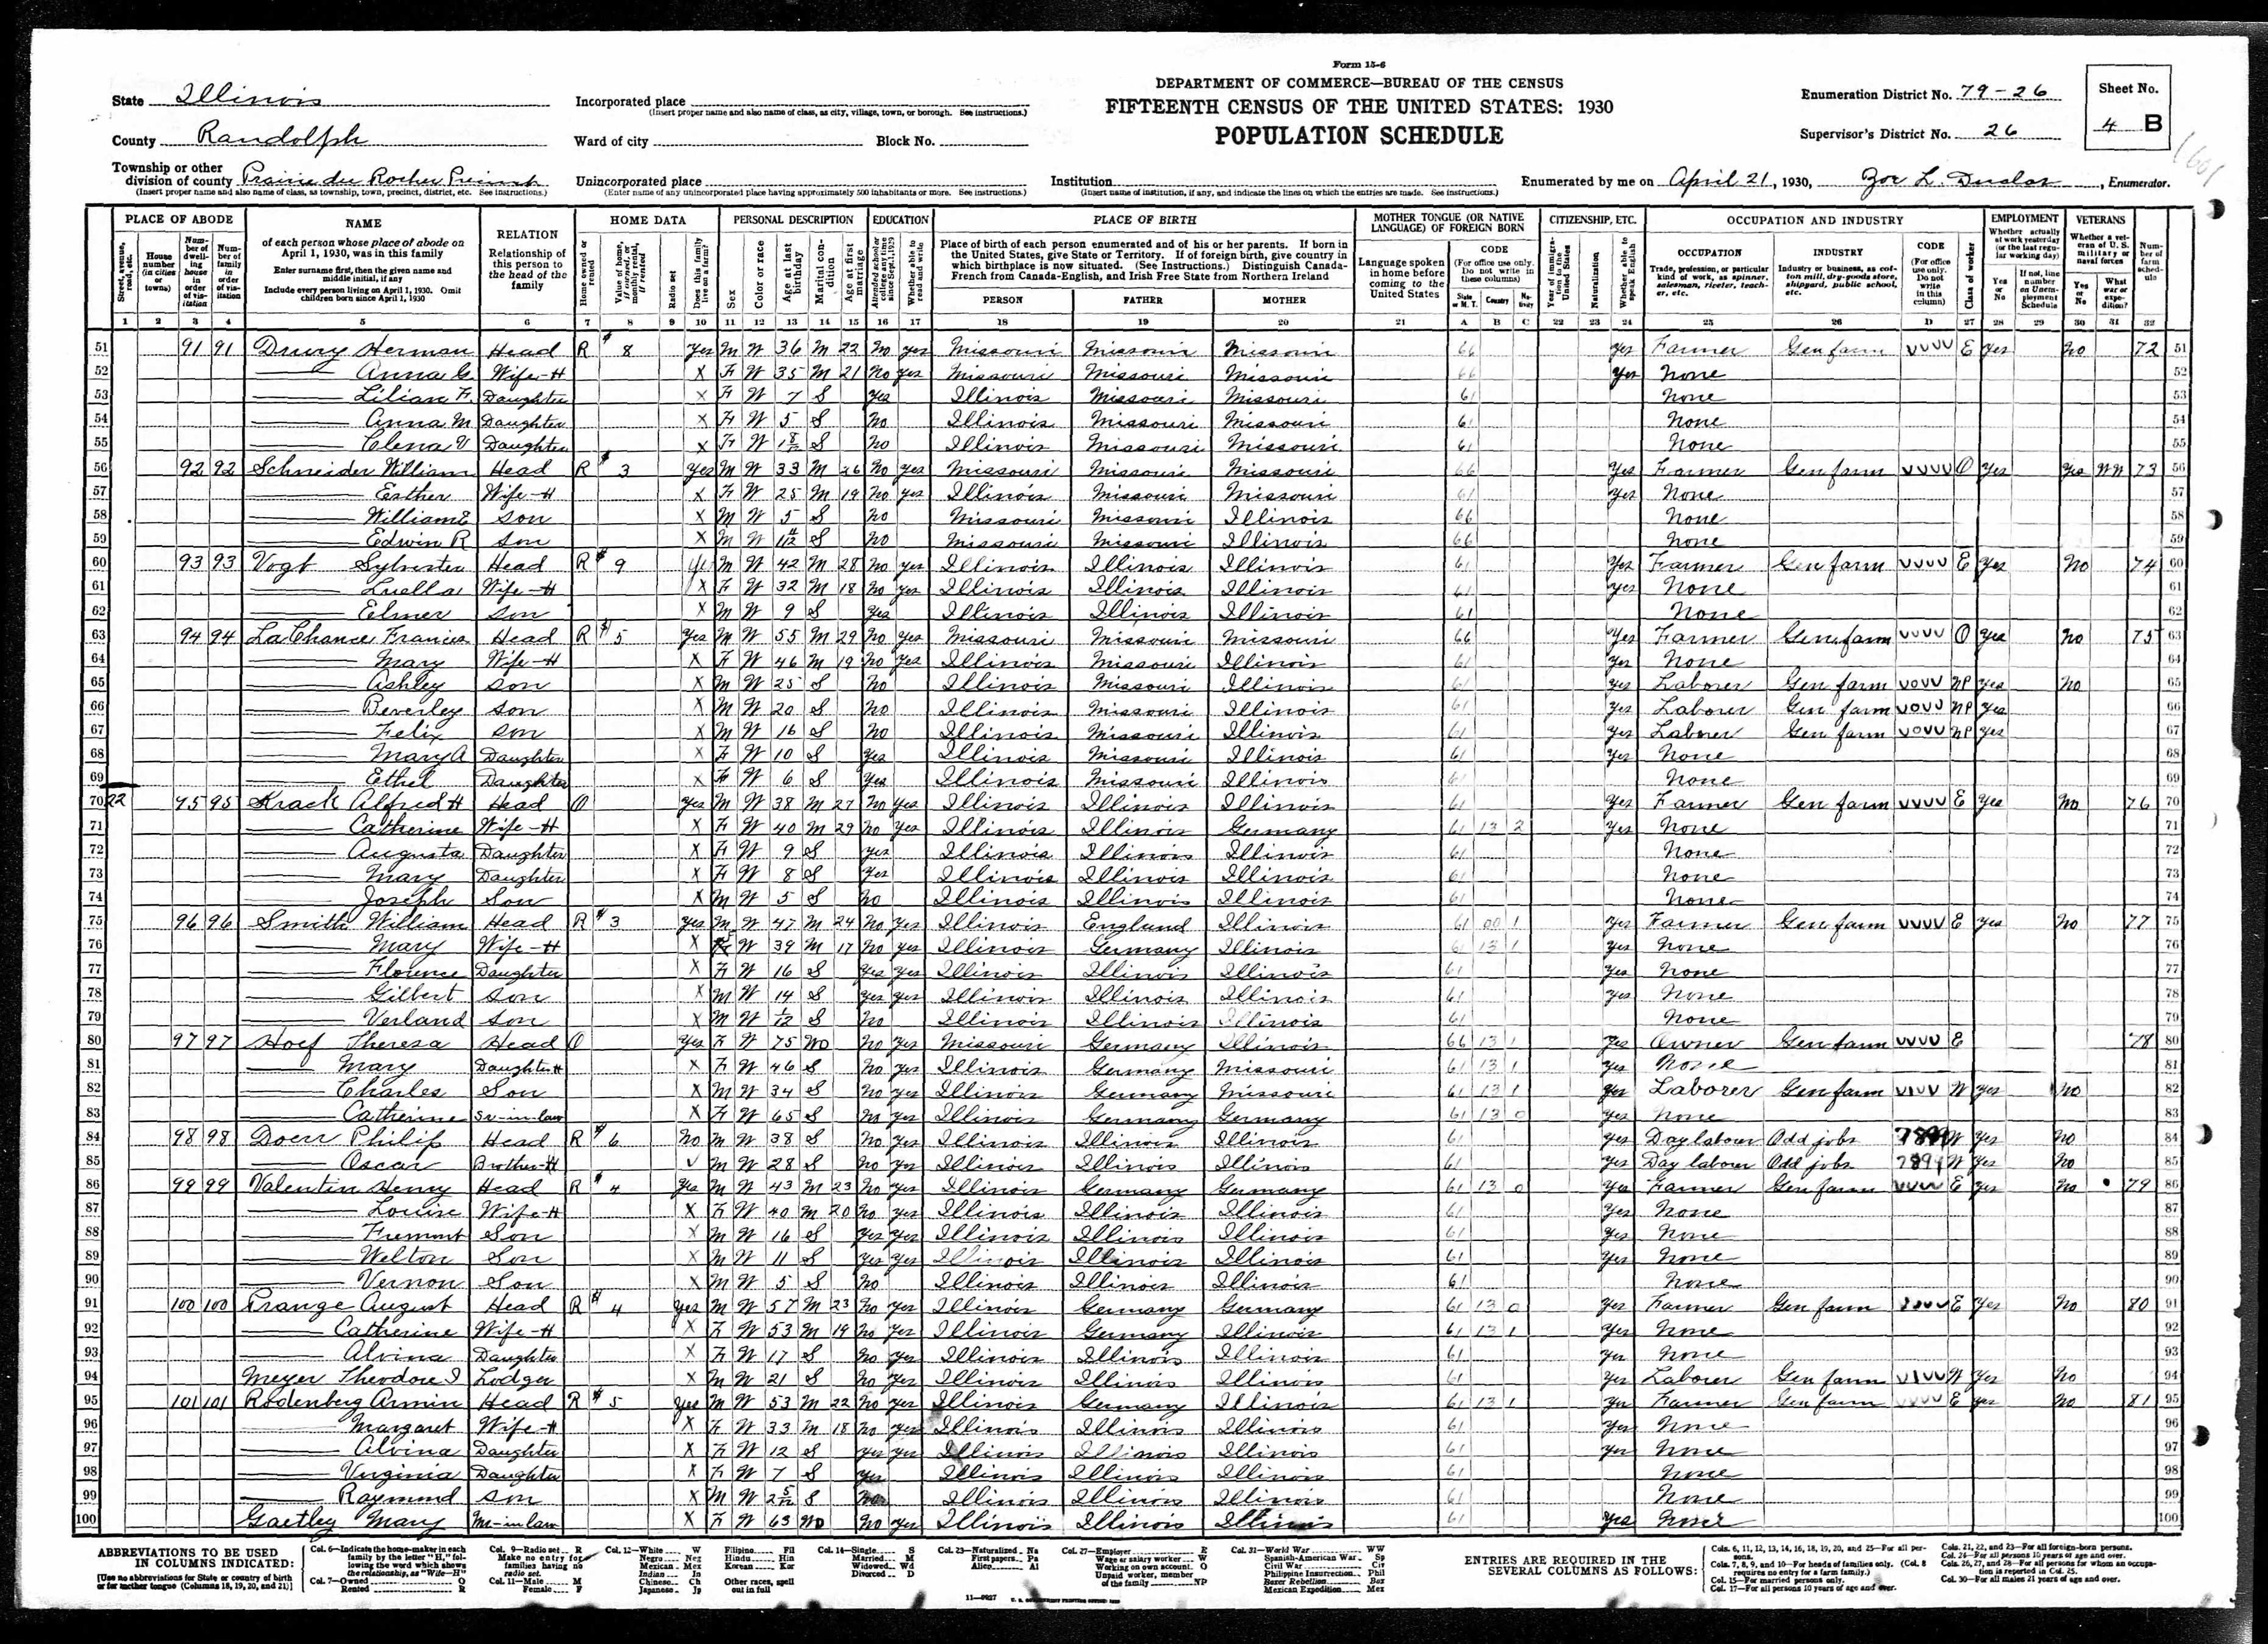 Form 15-6
DEPARTMENT OF COMMERCE—BUREAU OF THE CENSUS
FIFTEENTH CENSUS OF THE UNITED STATES: 1930
POPULATION SCHEDULE
State Illinois
County Randolph
Township or other division of county Prairie du Rocher Precinct
(Insert proper name and also name of class, as township, town, precinct, district, etc. See instructions.)
Incorporated place
(Insert proper name and also name of class, as city, village, town, or borough. See instructions.)
Ward of city Block No.
Unincorporated place
(Enter name of any unincorporated place having approximately 500 inhabitants or more. See instructions.)
Institution
(Insert name of institution, if any, and indicate the lines on which the entries are made. See instructions.)
Enumeration District No. 79-26
Supervisor's District No. 26
Sheet No. 4 B
Enumerated by me on April 21, 1930, Zoe L. , Enumerator.
PLACE OF ABODE NAME RELATION HOME DATA PERSONAL DESCRIPTION EDUCATION PLACE OF BIRTH MOTHER TONGUE (OR NATIVE LANGUAGE) OF FOREIGN BORN CITIZENSHIP, ETC. OCCUPATION AND INDUSTRY EMPLOYMENT VETERANS
1 2 3 4 5 6 7 8 9 10 11 12 13 14 15 16 17 18 19 20 21 A B C 22 23 24 25 26 D 27 28 29 30 31 32
51 91 91 Drury Herman Head R $ 8 Yes M W 36 M 22 No yes Missouri Missouri Missouri 66 Yes Farmer Gen farm VVVV E Yes No 72 51
52 Anna G. Wife-H X F W 35 M 21 No yes Missouri Missouri Missouri 66 Yes None 52
53 Lilian F. Daughter X F W 7 S Yes Illinois Missouri Missouri 61 None 53
54 Anna M Daughter X F W 5 S No Illinois Missouri Missouri 61 None 54
55 Clena V Daughter X F W 1 8/12 S No Illinois Missouri Missouri 61 None 55
56 92 92 Schneider William Head R $ 3 Yes M W 33 M 26 No yes Missouri Missouri Missouri 66 Yes Farmer Gen farm VVVV O Yes Yes WW 73 56
57 Esther Wife-H X F W 25 M 19 No yes Illinois Missouri Missouri 61 Yes None 57
58 William E son X M W 5 S No Missouri Missouri Illinois 66 None 58
59 Edwin R son X M W S No Missouri Missouri Illinois 66 None 59
60 93 93 Vogt Sylvester Head R $ 9 Yes M W 42 M 28 No yes Illinois Illinois Illinois 61 Yes Farmer Gen farm VVVV E Yes No 74 60
61 Luella Wife-H X F W 32 M 18 No yes Illinois Illinois Illinois 61 Yes None 61
62 Elmer son X M W 9 S Yes Illinois Illinois Illinois 61 None 62
63 94 94 LaChance Francis Head R $ 5 Yes M W 55 M 29 No yes Missouri Missouri Missouri 66 Yes Farmer Gen farm VVVV O Yes No 75 63
64 Mary Wife-H X F W 46 M 19 No yes Illinois Missouri Illinois 61 Yes None 64
65 Ashley son X M W 25 S No Illinois Missouri Illinois 61 Yes Laborer Gen farm VOVV NP Yes No 65
66 Beverley son X M W 20 S No Illinois Missouri Illinois 61 Yes Laborer Gen farm VOVV NP Yes 66
67 Felix son X M W 16 S No Illinois Missouri Illinois 61 Yes Laborer Gen farm VOVV NP Yes 67
68 Mary A Daughter X F W 10 S Yes Illinois Missouri Illinois 61 Yes None 68
69 Ethel Daughter X F W 6 S Yes Illinois Missouri Illinois 61 None 69
70 22 95 95 Krack Alfred H Head O Yes M W 38 M 27 No Yes Illinois Illinois Illinois 61 Yes Farmer Gen farm VVVV E Yes No 76 70
71 Catherine Wife-H X F W 40 M 29 No Yes Illinois Illinois Germany 61 13 2 Yes None 71
72 Augusta Daughter X F W 9 S yes Illinois Illinois Illinois 61 None 72
73 Mary Daughter X F W 8 S Yes Illinois Illinois Illinois 61 None 73
74 Joseph Son X M W 5 S No Illinois Illinois Illinois 61 None 74
75 96 96 Smith William Head R $ 3 Yes M W 47 M 24 No Yes Illinois England Illinois 61 00 1 Yes Farmer Gen farm VVVV E Yes No 77 75
76 Mary Wife-H X F W 39 M 17 No yes Illinois Germany Illinois 61 13 1 Yes None 76
77 Florence Daughter X F W 16 S Yes Yes Illinois Illinois Illinois 61 Yes None 77
78 Gilbert son X M W 14 S Yes yes Illinois Illinois Illinois 61 Yes None 78
79 Verland son X M W 1/12 S No Illinois Illinois Illinois 61 None 79
80 97 97 Hoef Theresa Head O Yes F W 75 WD No Yes Missouri Germany Illinois 66 13 1 Yes Owner Gen farm VVVV E 78 80
81 Mary Daughter H X F W 46 S No Yes Illinois Germany Missouri 61 13 1 Yes None 81
82 Charles Son X M W 34 S No yes Illinois Germany Missouri 61 13 1 Yes Laborer Gen farm VIVV W Yes No 82
83 Catherine Sr-in-law X F W 65 S No yes Illinois Germany Germany 61 13 0 Yes None 83
84 98 98 Doerr Philip Head R $ 6 No M W 38 S No Yes Illinois Illinois Illinois 61 yes Day laborer Odd jobs 7899 W Yes No 84
85 Oscar Brother-H V M W 28 S No yes Illinois Illinois Illinois 61 Yes Day laborer Odd jobs 7899 W Yes No 85
86 99 99 Valentin Henry Head R $ 4 Yes M W 43 M 23 No Yes Illinois Germany Germany 61 13 0 Yes Farmer Gen farm VVVV E Yes No 79 86
87 Louise Wife-H X F W 40 M 20 No yes Illinois Illinois Illinois 61 Yes None 87
88 Fremont Son X M W 16 S Yes Yes Illinois Illinois Illinois 61 Yes None 88
89 Welton Son X M W 11 S Yes Yes Illinois Illinois Illinois 61 Yes None 89
90 Vernon Son X M W 5 S No Illinois Illinois Illinois 61 None 90
91 100 100 Prange August Head R $ 4 Yes M W 57 M 23 No Yes Illinois Germany Germany 61 13 0 Yes Farmer Gen farm VVVV E Yes No 80 91
92 Catherine Wife-H X F W 53 M 19 No Yes Illinois Germany Illinois 61 13 1 Yes None 92
93 Alvina Daughter X F W 17 S No Yes Illinois Illinois Illinois 61 Yes None 93
94 Meyer Theodore I Lodger X M W 21 S No Yes Illinois Illinois Illinois 61 Yes Laborer Gen farm VIVV W Yes No 94
95 101 101 Rodenberg Armin Head R $ 5 Yes M W 53 M 22 No yes Illinois Germany Illinois 61 13 1 Yes Farmer Gen farm VVVV E yes No 81 95
96 Margaret Wife-H X F W 33 M 18 No yes Illinois Illinois Illinois 61 Yes None 96
97 Alvina Daughter X F W 12 S Yes Yes Illinois Illinois Illinois 61 Yes None 97
98 Virginia Daughter X F W 7 S Yes Illinois Illinois Illinois 61 None 98
99 Raymond son X M W 2 5/12 S Illinois Illinois Illinois 61 None 99
100 Gaetley Mary M-in law X F W 63 WD No yes Illinois Illinois Illinois 61 Yes None 100
ABBREVIATIONS TO BE USED IN COLUMNS INDICATED:
[Use no abbreviations for State or country of birth or for mother tongue (Columns 18, 19, 20, and 21)]
ENTRIES ARE REQUIRED IN THE SEVERAL COLUMNS AS FOLLOWS: